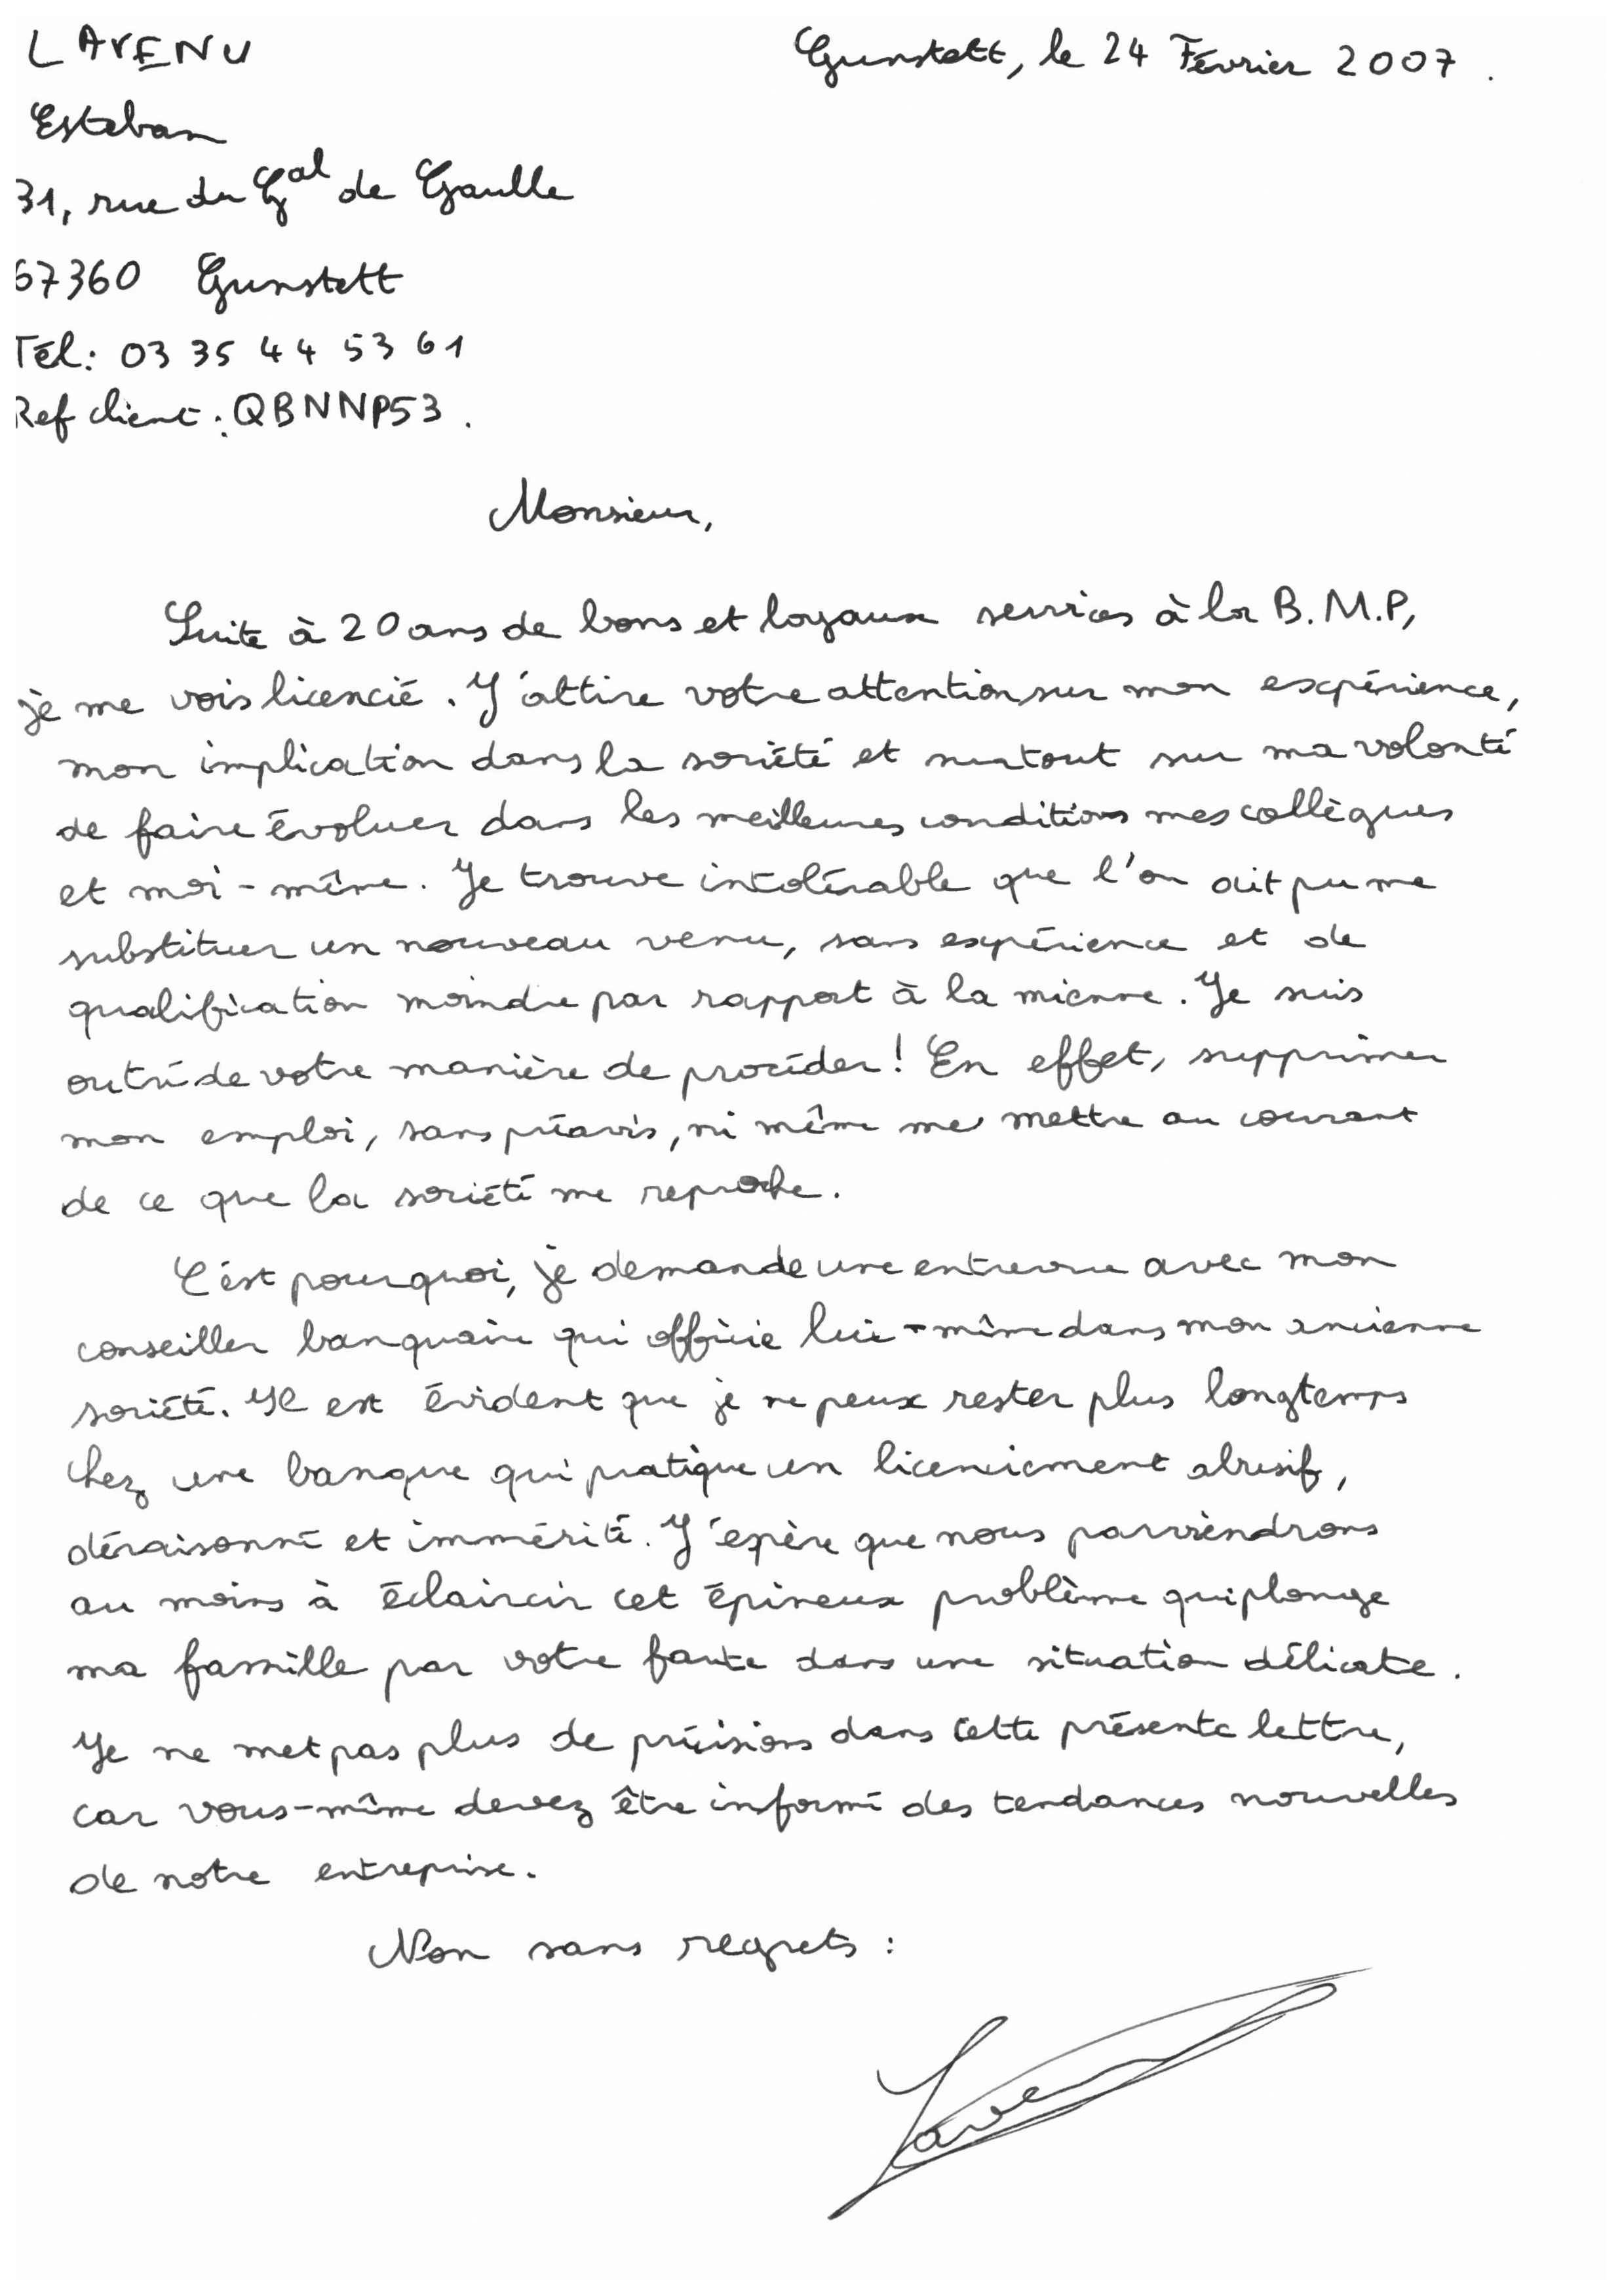 LAVENU
Gunstett, le 24 Février 2007.
Esteban
31, rue du Gal de Gaulle
67360 Gunstett
Tél: 03 35 44 53 61
Ref client : QBNNP53.
Monsieur,
Suite à 20 ans de bons et loyaux services à la B.M.P,
je me vois licencié. J'attire votre attention sur mon expérience,
mon implication dans la société et surtout sur ma volonté
de faire évoluer dans les meilleures conditions mes collègues
et moi-même. Je trouve intolérable que l'on ait pu me
substituer un nouveau venu, sans expérience et de
qualification moindre par rapport à la mienne. Je suis
outré de votre manière de procéder! En effet, supprimer
mon emploi, sans préavis, ni même me mettre au courant
de ce que la société me reproche.
C'est pourquoi, je demande une entrevue avec mon
conseiller banquaire qui officie lui-même dans mon ancienne
société. Il est évident que je ne peux rester plus longtemps
chez une banque qui pratique un licenciement abusif,
déraisonné et immérité. J'espère que nous parviendrons
au moins à éclaircir cet épineux problème qui plonge
ma famille par votre faute dans une situation délicate.
Je ne met pas plus de précisions dans cette présente lettre,
car vous-même devez être informé des tendances nouvelles
de notre entreprise.
Non sans regrets :
Lavenu